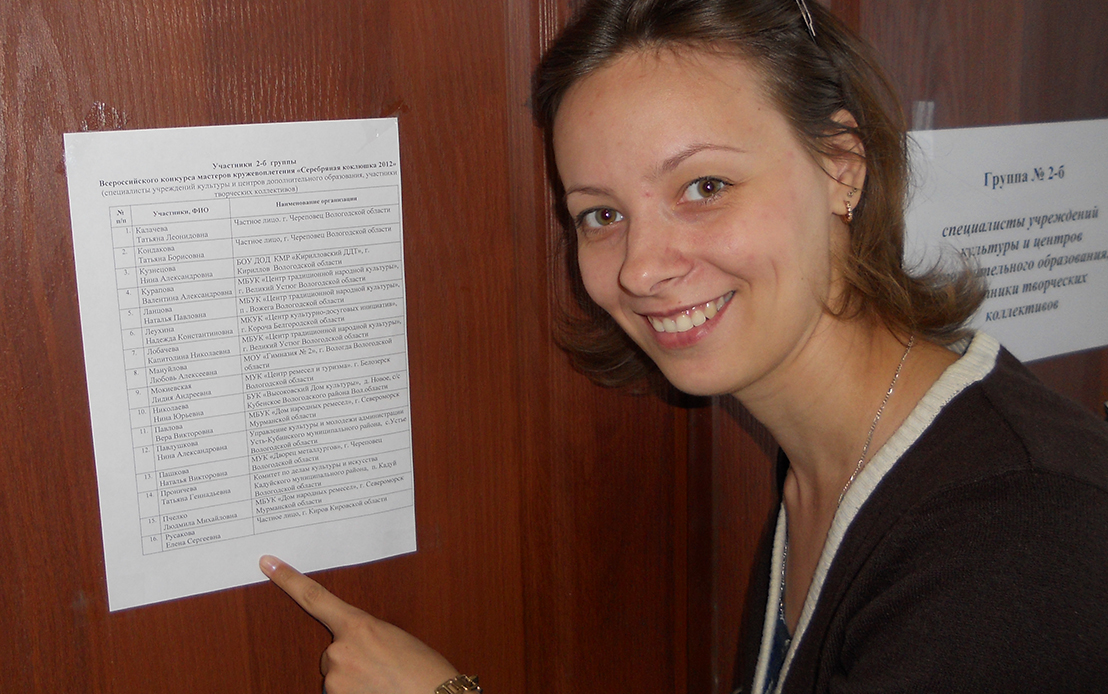 Участники 2-б группы
Всероссийского конкурса мастеров кружевоплетения «Серебряная коклюшка 2012»
(специалисты учреждений культуры и центров дополнительного образования, участники
творческих коллективов)
№ Участники, ФИО Наименование организации
п/п
1. Калачева Частное лицо. г. Череповец Вологодской области
Татьяна Леонидовна
2. Кондакова Частное лицо, г. Череповец Вологодской области
Татьяна Борисовна
3. Кузнецова БОУ ДОД КМР «Кирилловский ДДТ», г.
Нина Александровна Кириллов Вологодской области
4. Курапова МБУК «Центр традиционной народной культуры»,
Валентина Александровна г. Великий Устюг Вологодской области
5. Ланцова МБУК «Центр традиционной народной культуры»,
Наталья Павловна п . Вожега Вологодской области
6. Леухина МКУК «Центр культурно-досуговых инициатив»,
Надежда Константиновна г. Короча Белгородской области
7. Лобачева МБУК «Центр традиционной народной культуры»,
Капитолина Николаевна г. Великий Устюг Вологодской области
8. Мануйлова МОУ «Гимназия № 2», г. Вологда Вологодской
Любовь Алексеевна области
9. Мокиевская МУК «Центр ремесел и туризма». г. Белозерск
Лидия Андреевна Вологодской области
10. Николаева БУК «Высоковский Дом культуры», д. Новое, с/с
Нина Юрьевна Кубенское Вологодского района Вол.области
11. Павлова МБУК «Дом народных ремесел», г. Североморск
Вера Викторовна Мурманской области
12. Павдушкова Управление культуры и молодежи администрации
Нина Александровна Усть-Кубинского муниципального района, с.Устье
Вологодской области
13. Пашкова МУК «Дворец металлургов», г. Череповец
Наталья Викторовна Вологодской области
14. Проничева Комитет по делам культуры и искусства
Татьяна Геннадьевна Кадуйского муниципального района, п. Кадуй
Вологодской области
15. Пчелко МБУК «Дом народных ремесел», г. Североморск
Людмила Михайловна Мурманской области
16. Русакова Частное лицо, г. Киров Кировской области
Елена Сергеевна
Группа № 2-б
специалисты учреждений
культуры и центров
образования,
творческих
коллективов